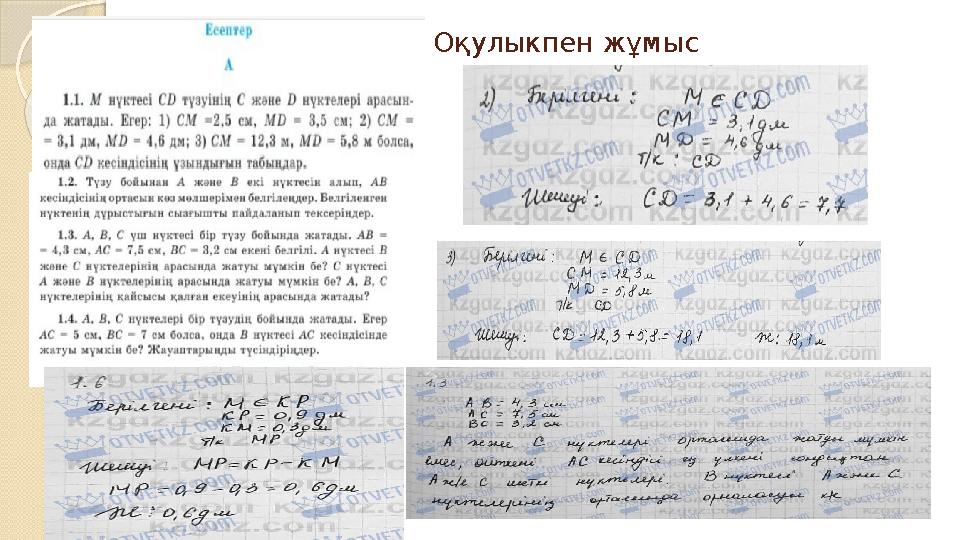 Оқулыкпен жұмыс
Есептер
А
1.1. M нүктесі CD түзуінің C және D нүктелері арасын-
да жатады. Егер: 1) CM =2,5 см, MD = 3,5 см; 2) CM =
= 3,1 дм, MD = 4,6 дм; 3) CM = 12,3 м, MD = 5,8 м болса,
онда CD кесіндісінің ұзындығын табыңдар.
1.2. Түзу бойынан A және B екі нүктесін алып, AB
кесіндісінің ортасын көз мөлшерімен белгілеңдер. Белгіленген
нүктенің дұрыстығын сызғышты пайдаланып тексеріңдер.
1.3. A, B, C үш нүктесі бір түзу бойында жатады. AB =
= 4,3 см, AC = 7,5 см, BC = 3,2 см екені белгілі. A нүктесі B
және C нүктелерінің арасында жатуы мүмкін бе? C нүктесі
A және B нүктелерінің арасында жатуы мүмкін бе? A, B, C
нүктелерінің қайсысы қалған екеуінің арасында жатады?
1.4. A, B, C нүктелері бір түзудің бойында жатады. Егер
AC = 5 см, BC = 7 см болса, онда B нүктесі AC кесіндісінде
жатуы мүмкін бе? Жауаптарыңды түсіндіріңдер.
2) Берілгені : M ∈ CD
CM = 3,1 дм
MD = 4,6 дм
т/к : CD
Шешуі : CD = 3,1 + 4,6 = 7,7
3) Берілгені : M ∈ CD
CM = 12,3 м
MD = 5,8 м
т/к CD
Шешуі : CD = 12,3 + 5,8 = 18,1 Ж: 18,1 м
1.6
Берілгені : M ∈ KP
KP = 0,9 дм
KM = 0,3 дм
т/к MP
Шешуі : MP = KP - KM
MP = 0,9 - 0,3 = 0,6 дм
Ж : 0,6 дм
1.3
AB = 4,3 см
AC = 7,5 см
BC = 3,2 см
A және C нүктелері ортасында жатуы мүмкін
емес, өйткені AC кесіндісі ең үлкені сондықтан
A ж/е C шеткі нүктелері. B нүктесі A және C
нүктелерінің ортасында орналасқан